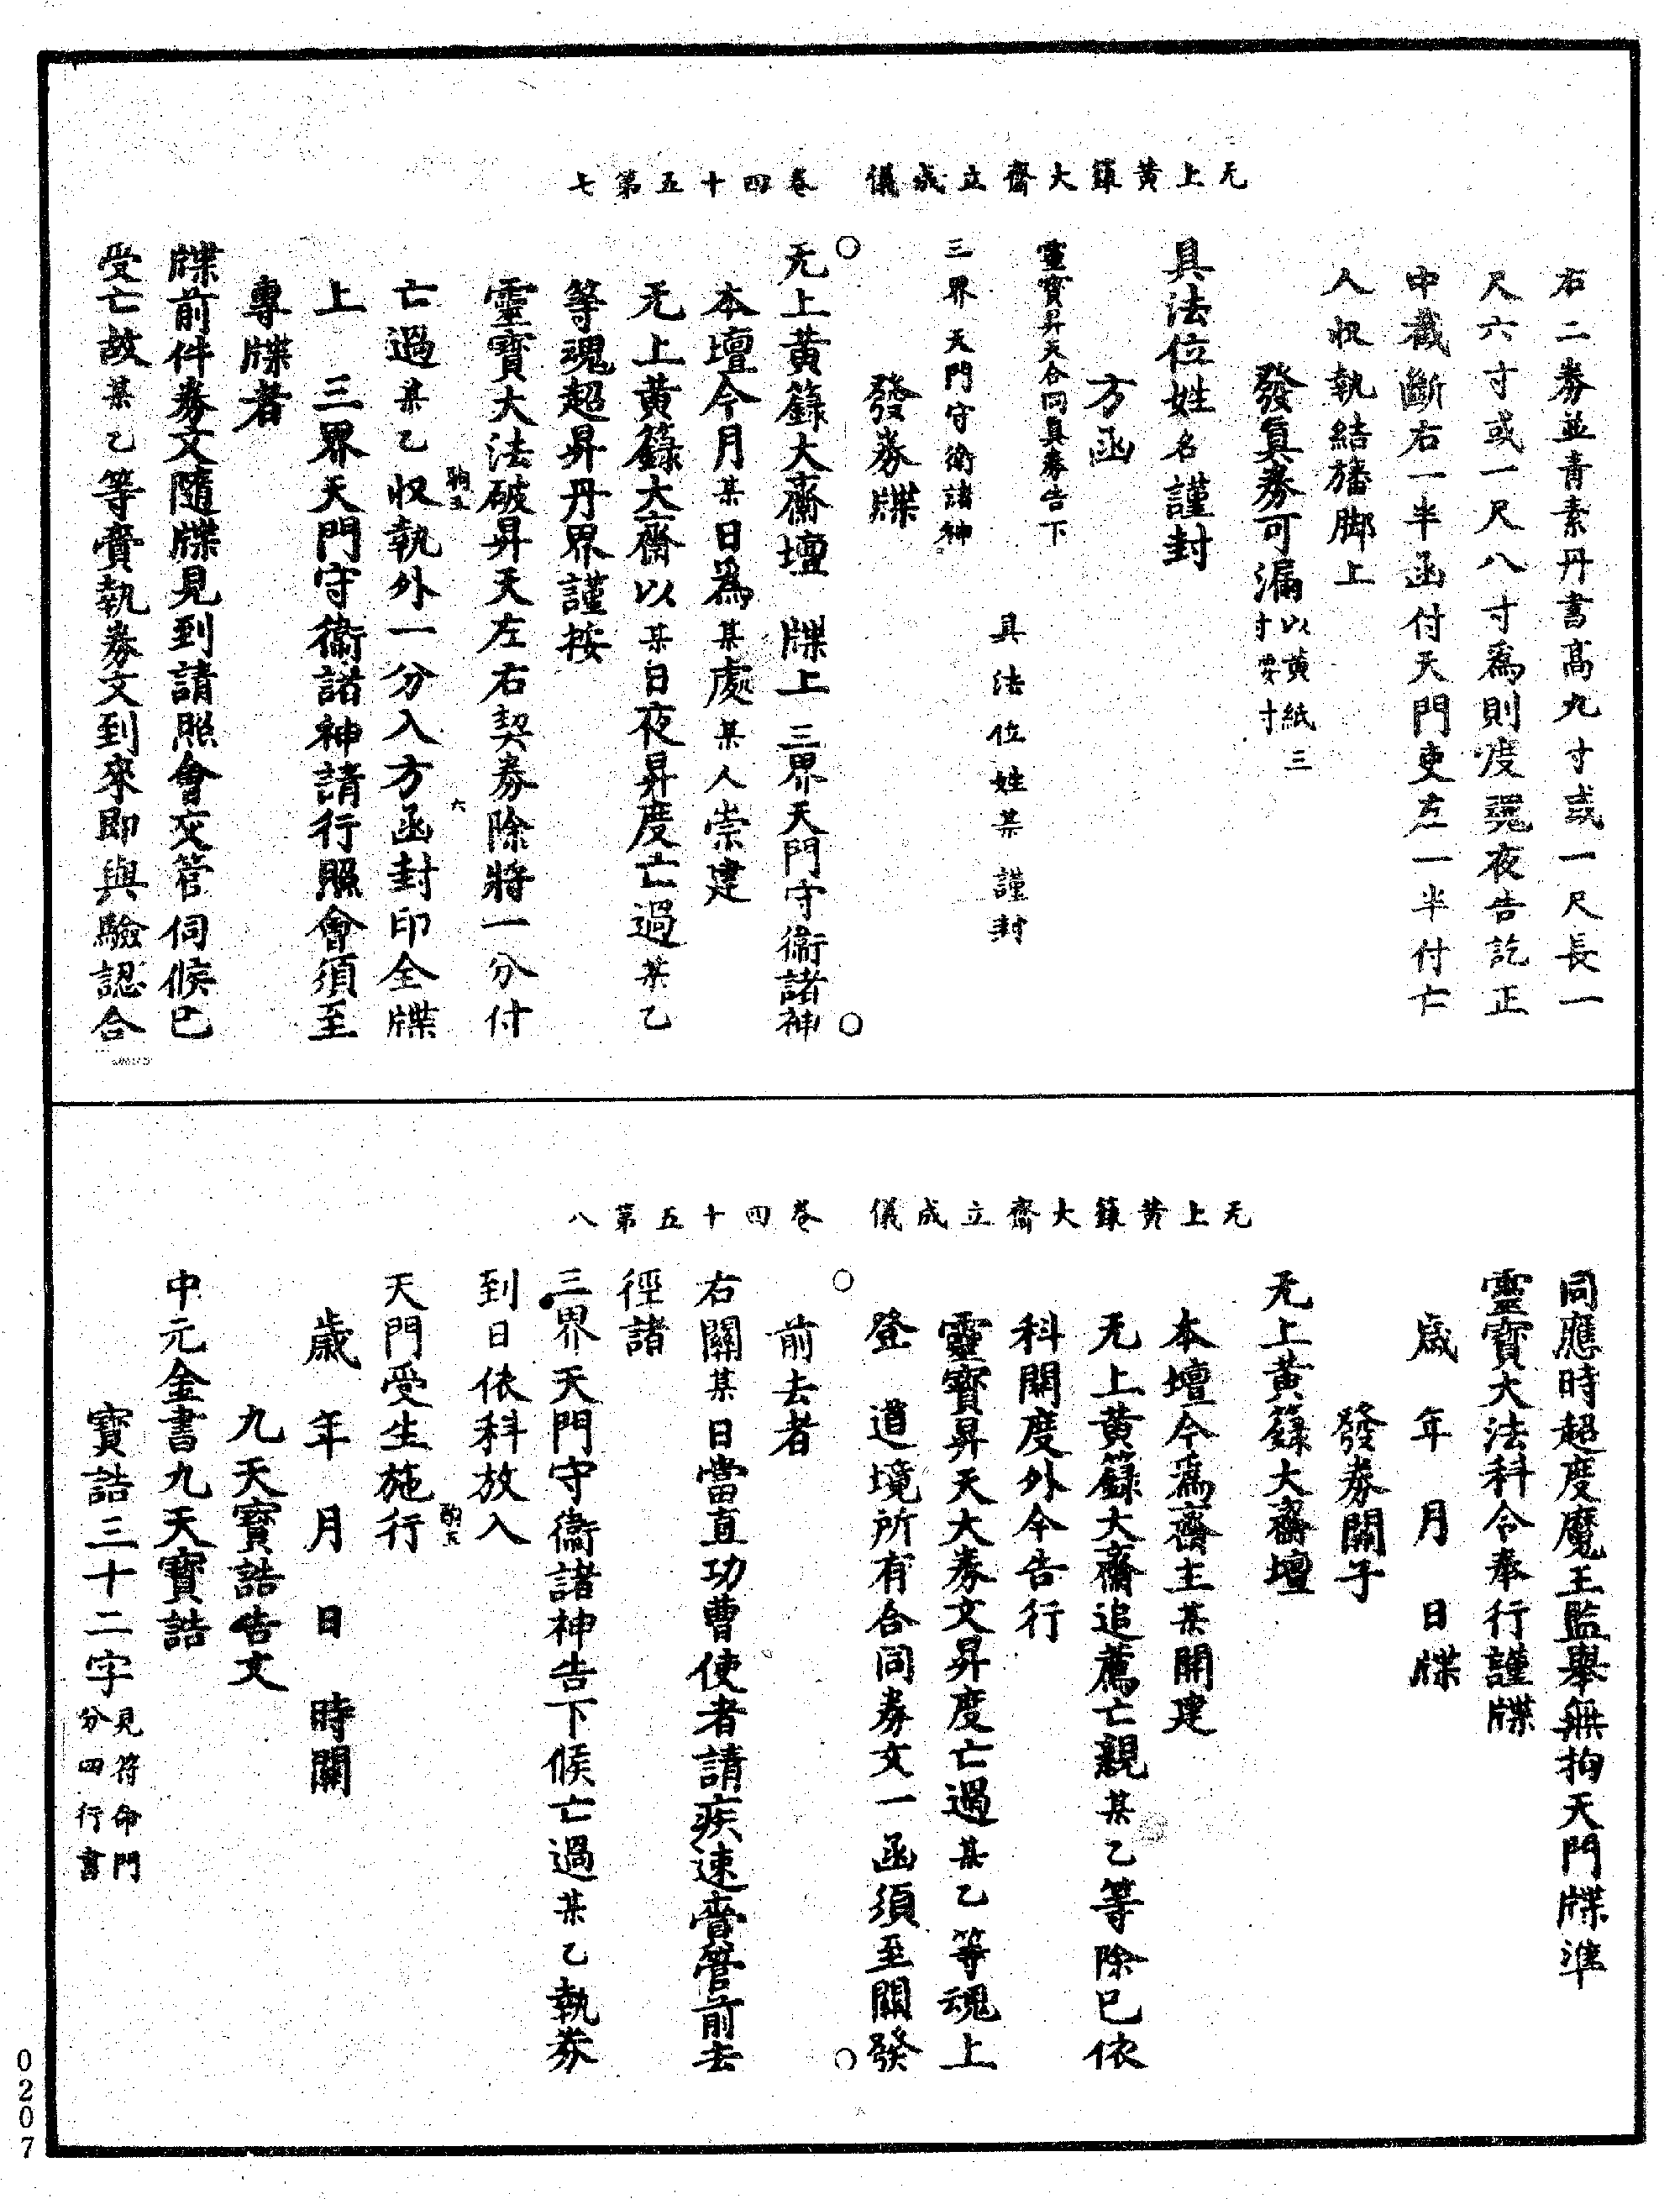 无上黃籙大齋立成儀　卷四十五第七
右二券並青素丹書高九寸或一尺長一
尺六寸或一尺八寸爲則度魂夜告訖正
中截斷右一半函付天門吏左一半付亡
人收執結旛脚上
發眞券可漏以黃紙三寸
具法位姓名謹封
方函
靈寶昇天合同眞券告下
具法位姓某謹封
三界天門守衛諸神
發券牒
无上黃籙大齋壇　牒上三界天門守衛諸神
本壇今月某日爲某處某人崇建
无上黃籙大齋以某日夜昇度亡過某乙
等魂超昇丹界謹按
靈寶大法破昇天左右契券除將一分付
亡過某乙收執外一分入方函封印全牒
上　三界天門守衛諸神請行照會須至
專牒者
牒前件券文隨牒見到請照會交管伺候已
受亡故某乙等賫執券文到來即與驗認合
无上黃籙大齋立成儀　卷四十五第八
同應時超度魔王監舉無拘天門牒準
靈寶大法科令奉行謹牒
歲　年　月　日牒
發券關子
无上黃籙大齋壇
本壇今爲齋主某開建
无上黃籙大齋追薦亡親某乙等除已依
科開度外今告行
靈寶昇天大券文昇度亡過某乙等魂上
登　道境所有合同券文一函須至關發
前去者
右關某日當直功曹使者請疾速賫管前去
徑諸
三界天門守衛諸神告下候亡過某乙執券
到日依科放入
天門受生施行
歲　年　月　日　時關
九天寶誥告文
中元金書九天寶誥
寶誥三十二字見符命門分四行書
0207